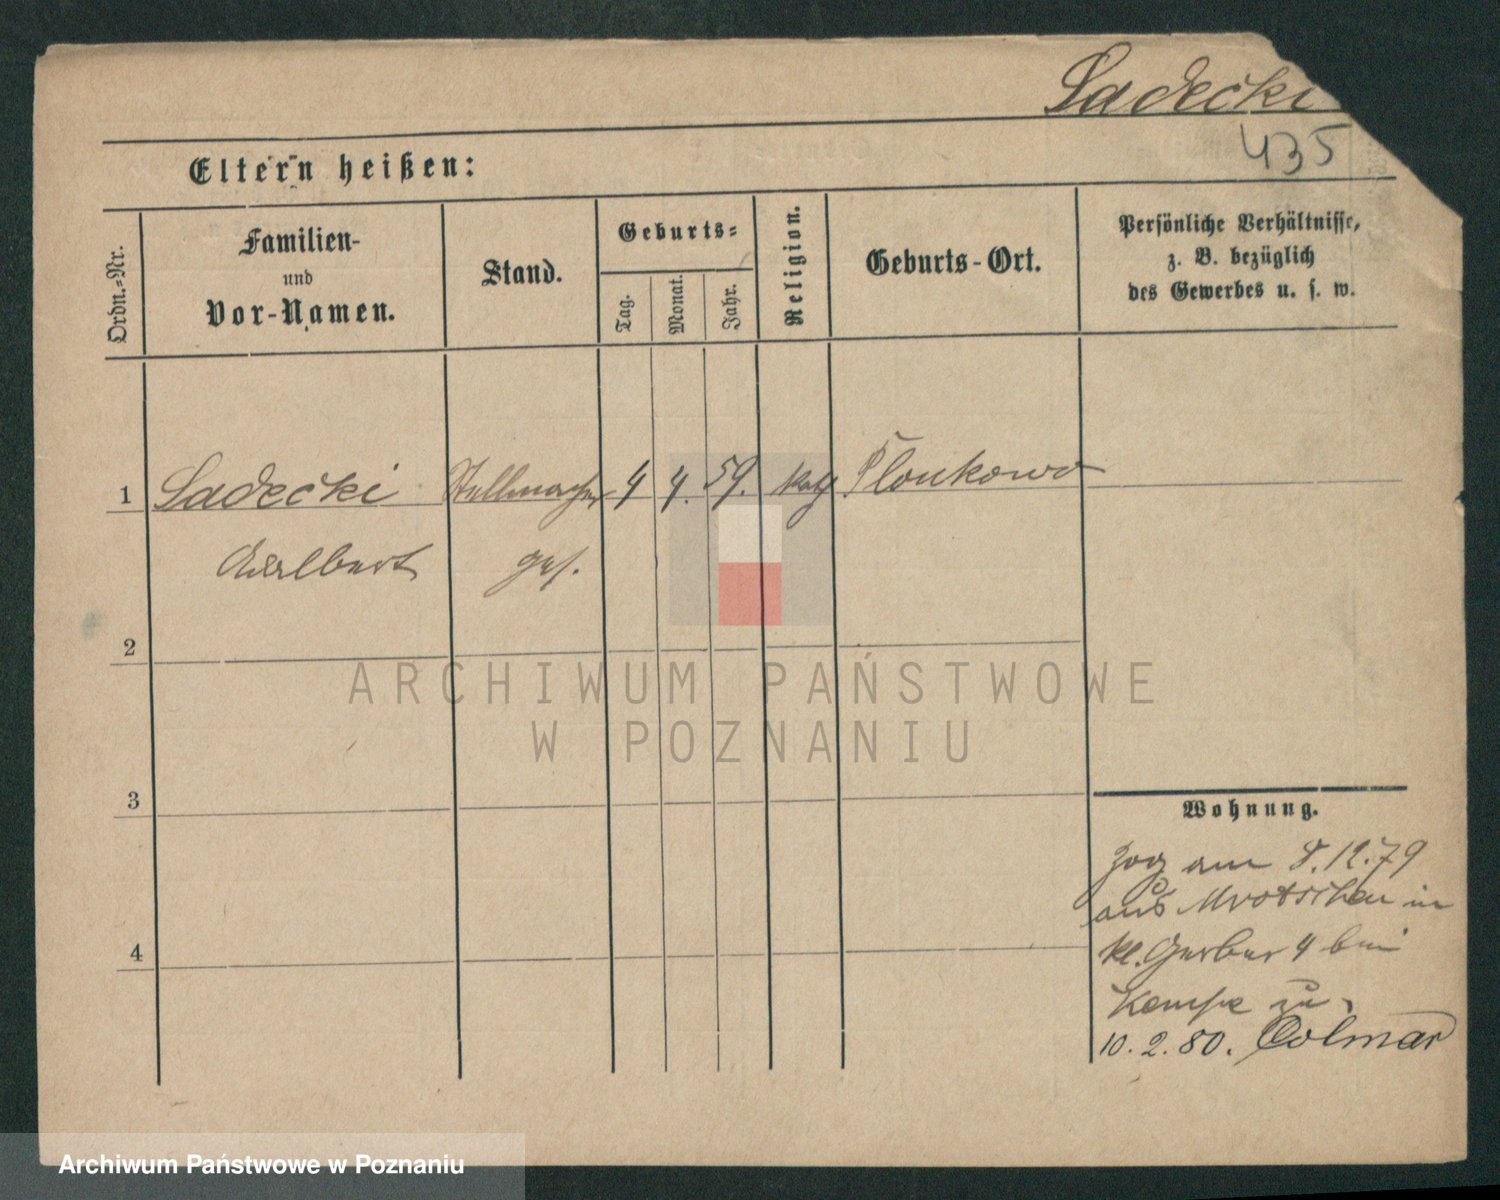 Sadecki
435
Eltern heißen:
Ordn.-Nr.
Familien-
und
Vor-Namen.
Stand.
Geburts-
Tag.
Monat.
Jahr.
Religion.
Geburts-Ort.
Persönliche Verhältnisse,
z. B. bezüglich
des Gewerbes u. s. w.
1 Sadecki Stellmacher 4 4. 59. kath Plonkowo
Adalbert ges.
2
ARCHIWUM PAŃSTWOWE
W POZNANIU
3
Wohnung.
zog am 8.12.79
aus Mrotschen in
kl. Gerber 4 bei
Kempe zu
4
10. 2. 80. Colmar
Archiwum Państwowe w Poznaniu